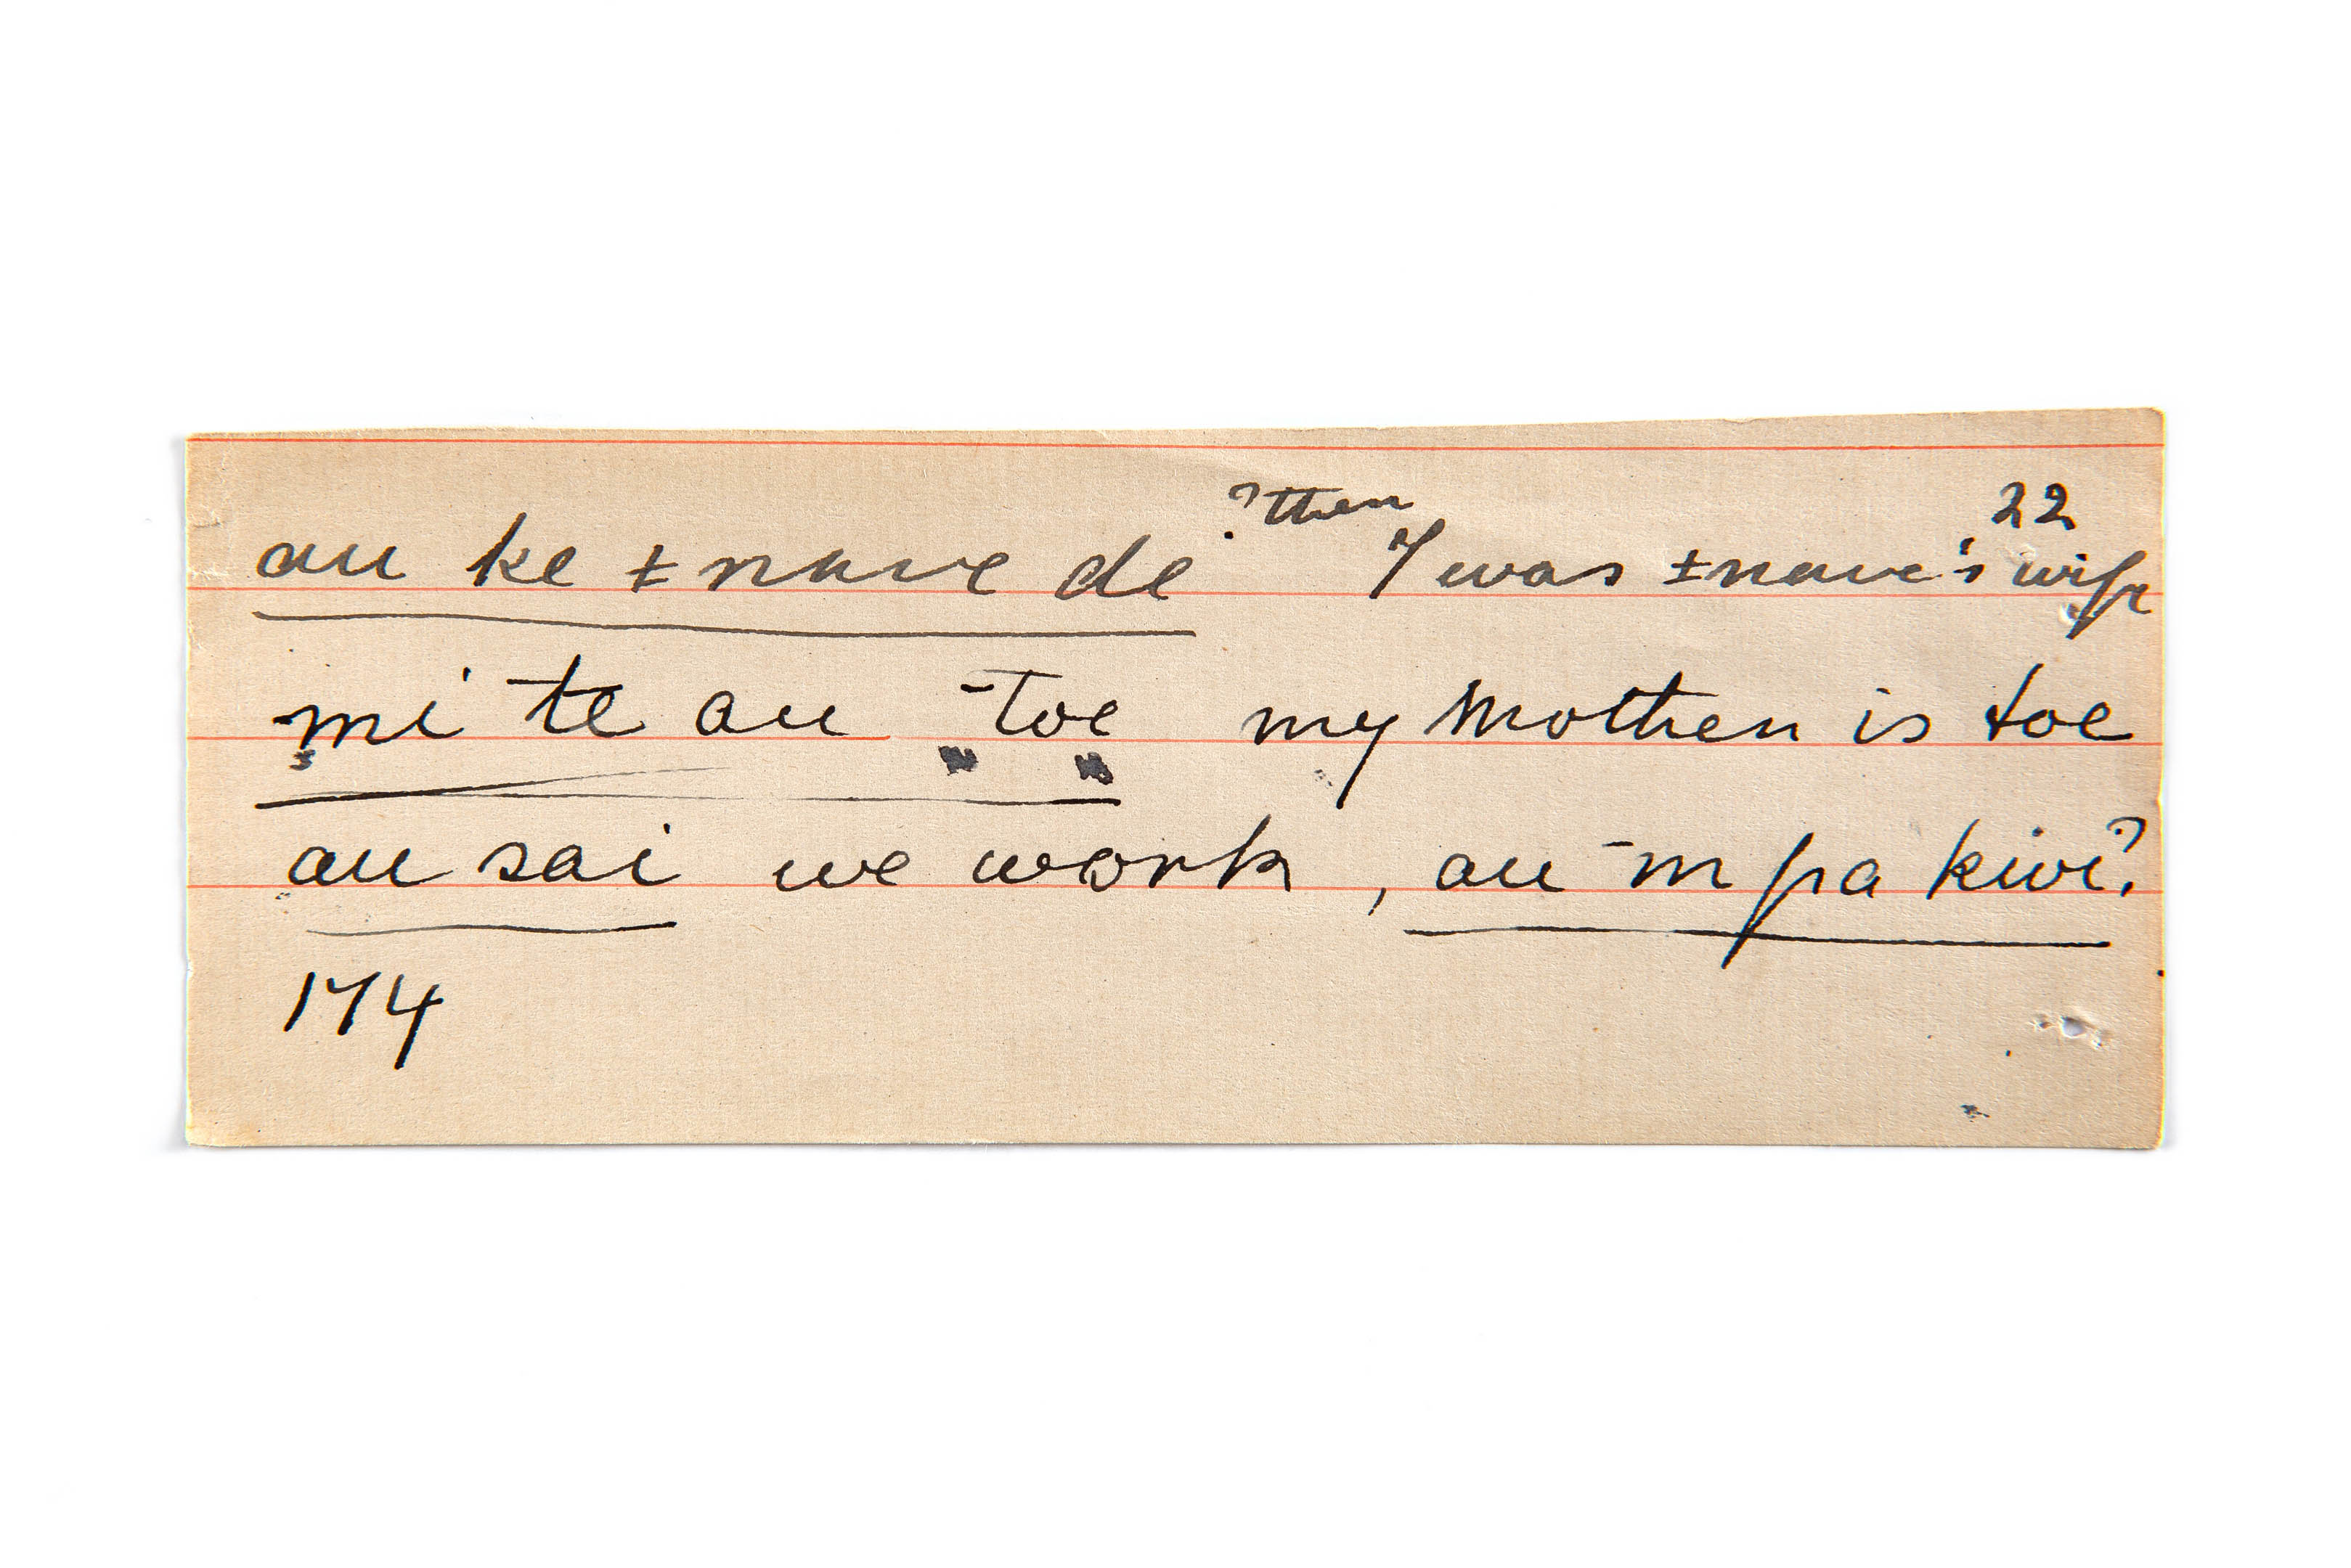 22
au ke ǂnuwe de ?then I was ǂnauve's wife
mi te au -toe my mother is toe
au sai we work, au -m pa kwi?
174